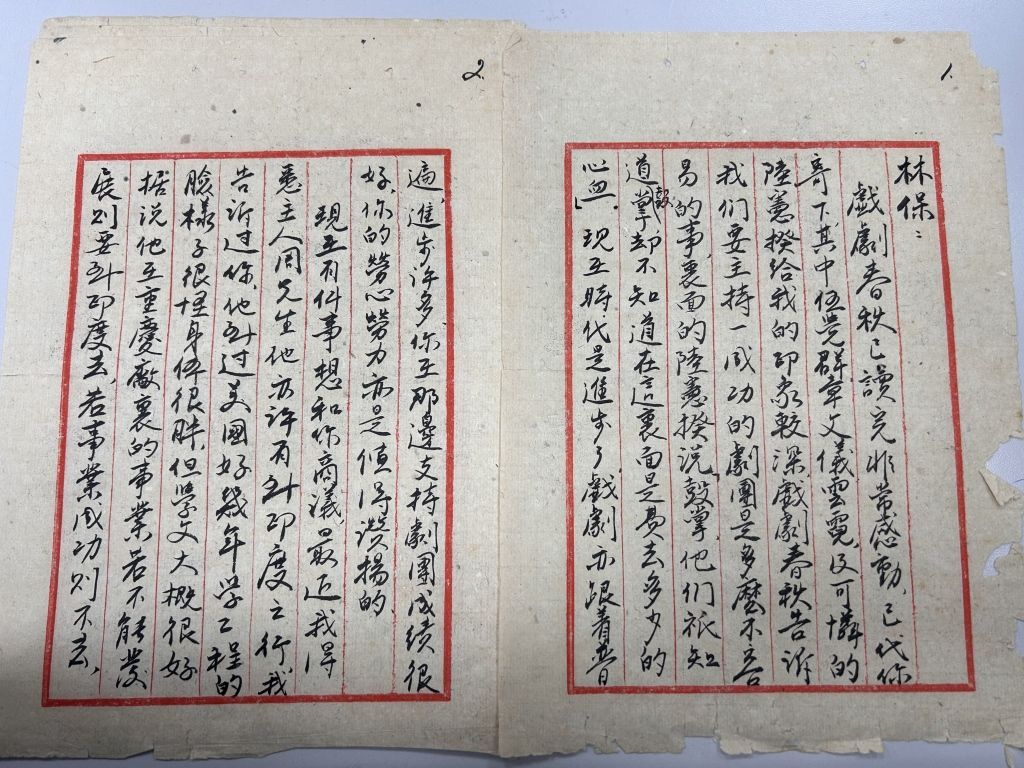 1.
林保：
戲劇春秋已讀完非常感動，已代你
寄下其中伍覺群章文儀雲霓，及可憐的
陸憲揆給我的印象較深戲劇春秋告訴
我们要主持一成功的劇團是多麼不容
易的事，裏面的陸憲揆说「鼓掌，他们祇知
道鼓掌却不知道在這裏面是費去多少的
心血」，現在時代是進步了，戲劇亦跟着普
2.
遍，進步许多，你在那邊支持劇團成績很
好，你的勞心勞力亦是值得讚揚的
現在有件事想和你商議，最近我得
悉主人周先生他亦许有到印度之行，我
告訴过你，他到过美國好幾年學工程的
臉樣子很怪身体很胖，但學文大概很好
据说他在重慶敝裏的事業若不能發
展则要到印度去，若事業成功则不去，